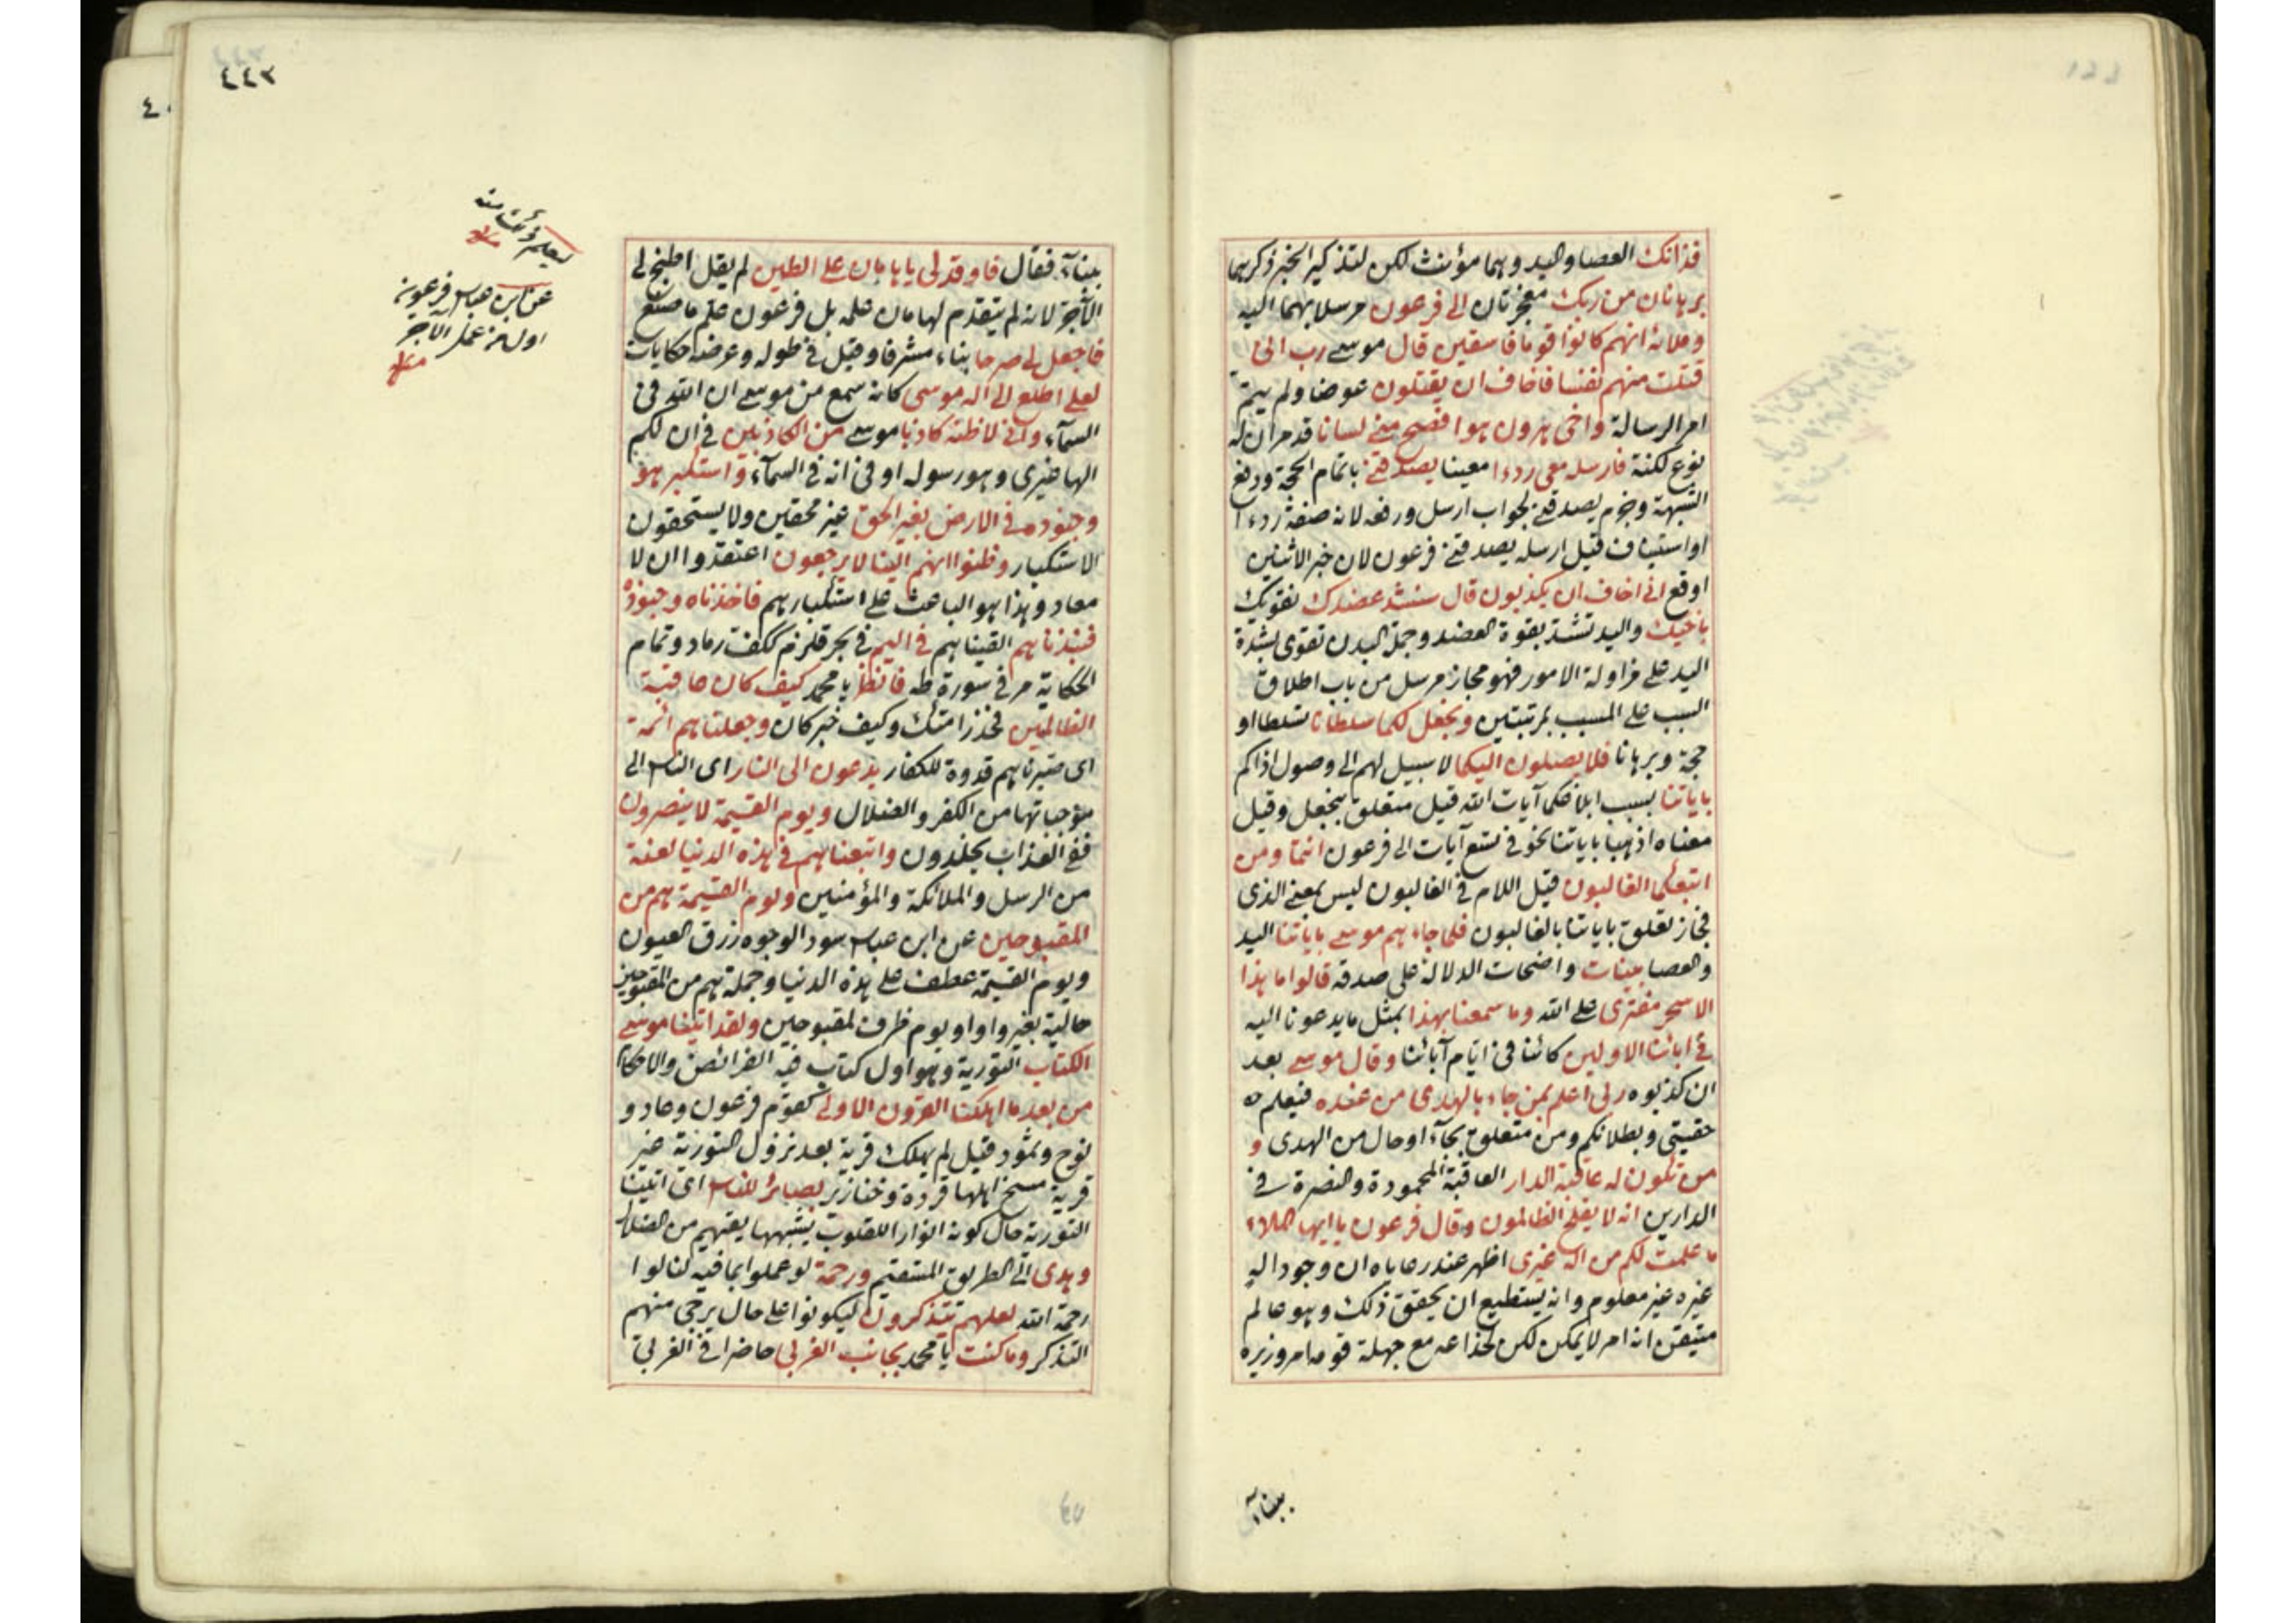 فذانك العصا واليد وهما مؤنث لكن لتذكير الخبر ذكرهما
برهانان من ربك معجزتان الى فرعون مرسلا بهما اليه
وملائه انهم كانوا قوما فاسقين قال موسى رب انى
قتلت منهم نفسا فاخاف ان يقتلون عوضا ولم يتم
امر الرسالة واخى هرون هو افصح منى لسانا قد مر ان له
نوع لكنة فارسله معى ردءا معينا يصدقنى باتمام الحجة ودفع
الشبهة وجزم يصدقنى لجواب ارسل ورفعه لانه صفة ردءا
او استيناف قيل ارسله يصدقنى فرعون لان خبر الاثنين
اوقع انى اخاف ان يكذبون قال سنشد عضدك نقويك
باخيك واليد تشتد بقوة العضد وجملة البدن تقوى بشدة
اليد على مزاولة الامور فهو مجاز مرسل من باب اطلاق
السبب على المسبب بمرتبتين ونجعل لكما سلطانا تسلطا او
حجة وبرهانا فلا يصلون اليكما لا سبيل لهم الى وصول اذاكم
باياتنا بسبب ابلاغكما آيات الله قيل متعلق بنجعل وقيل
معناه اذهبا باياتنا نحو فى تسع آيات الى فرعون انتما ومن
اتبعكما الغالبون قيل اللام فى الغالبون ليس بمعنى الذى
فجاز تعلق باياتنا بالغالبون فلما جاءهم موسى باياتنا اليد
والعصا بينات واضحات الدلالة على صدقه قالوا ما هذا
الا سحر مفترى على الله وما سمعنا بهذا بمثل ما يدعونا اليه
فى ابائنا الاولين كائنا فى ايام آبائنا وقال موسى بعد
ان كذبوه ربى اعلم بمن جاء بالهدى من عنده فيعلم
حقيتى وبطلانكم ومن متعلق بجاء او حال من الهدى و
من تكون له عاقبة الدار العاقبة المحمودة والنصرة فى
الدارين انه لا يفلح الظالمون وقال فرعون يا ايها الملاء
ما علمت لكم من اله غيرى اظهر عند رعاياه ان وجود اله
غيره غير معلوم وانه يستطيع ان يحقق ذلك وهو عالم
متيقن انه امر لا يمكن لكن لخداعه مع جهلة قومه امر وزيره
ببناء
٤٤٣
ببناء فقال فاوقد لى يا هامان على الطين لم يقل اطبخ لى
الآجر لانه لم يتقدم لهامان علمه بل فرعون علم ما صنع
فاجعل لى صرحا بناء مشرفا وقيل فى طوله وعرضه حكايات
لعلى اطلع الى اله موسى كانه سمع من موسى ان الله فى
السماء وانى لاظنه كاذبا موسى من الكاذبين فى ان لكم
الها غيرى وهو رسوله او فى انه فى السماء واستكبر هو
وجنوده فى الارض بغير الحق غير محقين ولا يستحقون
الاستكبار وظنوا انهم الينا لا يرجعون اعتقدوا ان لا
معاد وهذا هو الباعث على استكبارهم فاخذناه وجنوده
فنبذناهم القيناهم فى اليم فى بحر قلزم ككف رماد وتمام
الحكاية مر فى سورة طه فانظر يا محمد كيف كان عاقبة
الظالمين فحذر امتك وكيف خبر كان وجعلناهم ائمة
اى صيرناهم قدوة للكفار يدعون الى النار اى الناس الى
موجباتها من الكفر والضلال ويوم القيمة لا ينصرون
ففى العذاب يخلدون واتبعناهم فى هذه الدنيا لعنة
من الرسل والملائكة والمؤمنين ويوم القيمة هم من
المقبوحين عن ابن عباس سود الوجوه زرق العيون
ويوم القيمة عطف على هذه الدنيا وجملة هم من المقبوحين
حالية بغير واو او يوم ظرف لمقبوحين ولقد اتينا موسى
الكتاب التورية وهو اول كتاب فيه الفرائض والاحكام
من بعد ما اهلكنا القرون الاولى كقوم فرعون وعاد و
نوح وثمود قيل لم يهلك قرية بعد نزول التورية غير
قرية مسخ اهلها قردة وخنازير بصائر للناس اى اتينا
التورية حال كونه انوارا للقلوب ينبهها يقيهم من الضلال
وهدى الى الطريق المستقيم ورحمة لو عملوا بما فيه لنالوا
رحمة الله لعلهم يتذكرون ليكونوا على حال يرجى منهم
التذكر وما كنت يا محمد بجانب الغربى حاضرا فى الغربى
عن ابن عباس فرعون
اول من عمل الآجر
منه